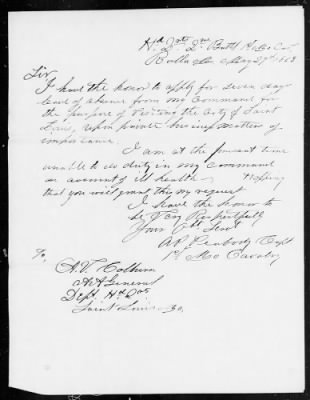 Hd Qts 2nd Batt
Rolla Mo May 27th 1863
Sir
I have the honor to apply for seven day
leave of absence from my Command for
the purpose of visiting the City of Saint
Louis, upon private business matters of
importance.
I am at the present time
unable to do duty in my command
on account of ill health Hopeing
that you will grant this my request
I have the honor to
be Very Respectfully
Your Obt Servt
A P Peabody Capt
1st Mo Cavalry
To
A.A. General
Dept Hd Qts
Saint Louis Mo.